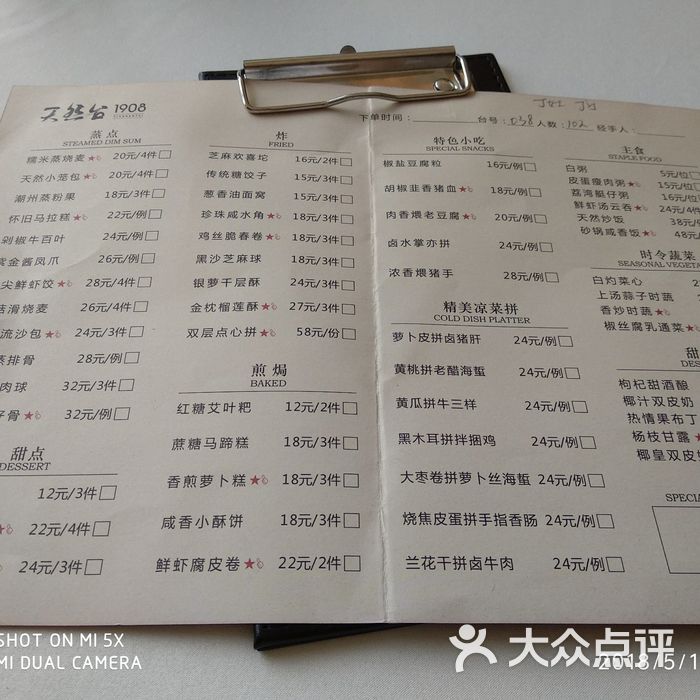 天然台 1908
下单时间：
台号：038 人数：102 经手人：
蒸点
STEAMED DIM SUM
糯米蒸烧麦★ 20元/4件
天然小笼包★ 20元/4件
潮州蒸粉果 18元/3件
怀旧马拉糕★ 22元/例
剁椒牛百叶 24元/例
紫金酱凤爪 26元/例
尖鲜虾饺★ 28元/4件
菇滑烧麦 26元/4件
流沙包★ 24元/3件
蒸排骨 28元/例
肉球 32元/3件
仔骨★ 32元/例
甜点
DESSERT
12元/3件
★ 22元/4件
24元/3件
炸
FRIED
芝麻欢喜坨 16元/2件
传统糖饺子 15元/3件
葱香油面窝 15元/3件
珍珠咸水角★ 18元/3件
鸡丝脆春卷★ 18元/3件
黑沙芝麻球 18元/3件
银萝千层酥 24元/3件
金枕榴莲酥★ 27元/3件
双层点心拼★ 58元/份
煎焗
BAKED
红糖艾叶粑 12元/2件
蔗糖马蹄糕 18元/3件
香煎萝卜糕★ 18元/3件
咸香小酥饼 18元/3件
鲜虾腐皮卷★ 22元/2件
特色小吃
SPECIAL SNACKS
椒盐豆腐粒 16元/例
胡椒韭香猪血★ 18元/例
肉香煨老豆腐★ 20元/例
卤水掌亦拼 24元/例
浓香煨猪手 28元/例
精美凉菜拼
COLD DISH PLATTER
萝卜皮拼卤猪肝 24元/例
黄桃拼老醋海蜇 24元/例
黄瓜拼牛三样 24元/例
黑木耳拼拌捆鸡 24元/例
大枣卷拼萝卜丝海蜇 24元/例
烧焦皮蛋拼手指香肠 24元/例
兰花干拼卤牛肉 24元/例
主食
STAPLE FOOD
白粥 5元/位
皮蛋瘦肉粥★ 15元/位
荔湾艇仔粥 16元/位
鲜虾汤云吞★ 24元/4件
天然炒饭 38元/
砂锅咸香饭★ 48元/
时令蔬菜
SEASONAL VEGETA
白灼菜心
上汤蒜子时蔬
香炒时蔬★
椒丝腐乳通菜★
甜
DES
枸杞甜酒酿
椰汁双皮奶
热情果布丁
杨枝甘露★
椰皇双皮
SPECI
SHOT ON MI 5X
MI DUAL CAMERA
大众点评
2018/5/1